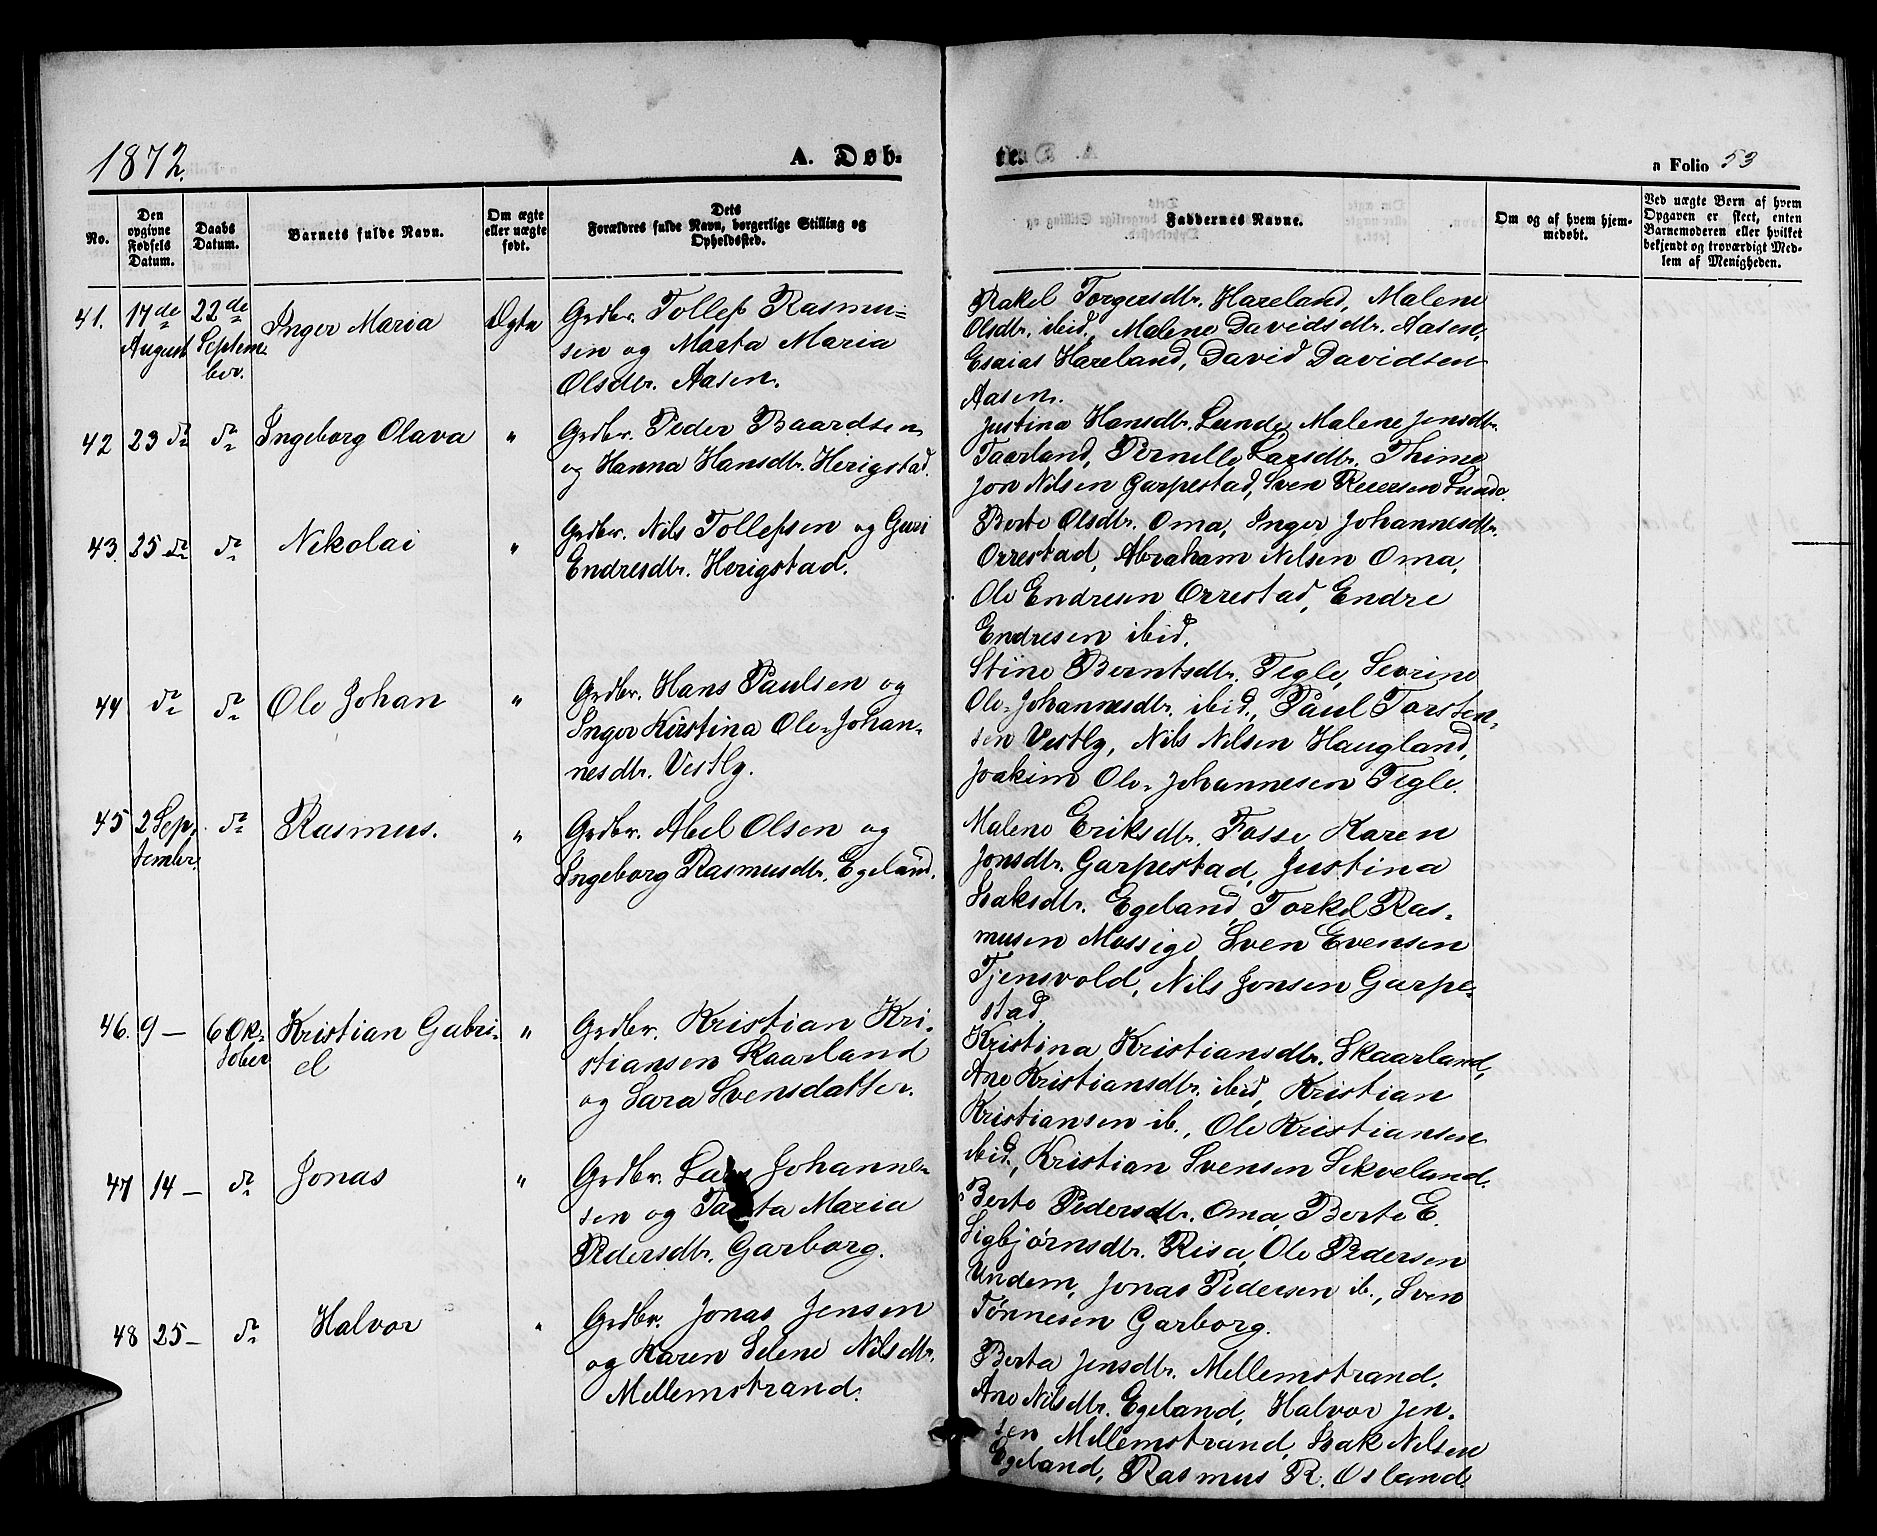 1872.
A. Døb-
te.
a Folio 53
No.
Den opgivne Fødsels Datum.
Daabs Datum.
Barnets fulde Navn.
Om ægte eller uægte født.
Dets Forældres fulde Navn, borgerlige Stilling og Opholdssted.
Faddernes Navne.
Om og af hvem hjemmedøbt.
Ved uægte Børn af hvem Opgaven er skeet, enten Barnemoderen eller hvilket bekjendt og troværdigt Medlem af Menigheden.
41. 17de August
22de September.
Inger Maria
Ægte
Grdbr. Tollef Rasmu-
sen og Marta Maria
Olsdtr. Aasen.
Rakel Torgersdtr. Hareland, Malene
Olsdtr. ibid., Malene Davidsdtr. Aasen,
Esaias Hareland, David Davidsen
Aasen.
42 23 do
do
Ingeborg Olava
"
Grdbr. Peder Baardsen
og Hanna Hansdtr. Herigstad.
Justina Hansdtr. Lunde, Malene Jensdtr.
Taarland, Pernille Larsdtr. Thime
Jon Nilsen Garpestad, Sven Reiersen Lunde.
43. 25 do
do
Nikolai
"
Grdbr. Nils Tollefsen og Guri
Endresdtr. Herigstad.
Berte Olsdtr. Oma, Inger Johannesdtr.
Orrestad, Abraham Nilsen Oma,
Ole Endresen Orrestad, Endre
Endresen ibid.
44 do
do
Ole Johan
"
Grdbr. Hans Paulsen og
Inger Kirstina Ole-Johan-
nesdtr. Vestly.
Stine Berntsdtr. Tegle, Sevrine
Ole-Johannesdtr. ibid., Paul Torsten-
sen Vestly, Nils Nilsen Haugland,
Joakim Ole-Johannesen Tegle.
45 2 Sep-
tember.
do
Rasmus.
"
Grdbr. Abel Olsen og
Ingeborg Rasmusdtr. Egeland.
Malene Eriksdtr. Fosse, Karen
Jonsdtr. Garpestad, Justina
Isaksdtr. Egeland, Torkel Ras-
musen Mossige, Sven Evensen
Tjensvold, Nils Jonsen Garpe-
stad.
46. 9 —
6 Ok-
tober
Kristian Gabri-
el
"
Grdbr. Kristian Kri-
stiansen Skaarland
og Sara Svensdatter.
Kristina Kristiansdtr. Skaarland,
Ane Kristiansdtr. ibid, Kristian
Kristiansen ib., Ole Kristiansen
ibid., Kristian Svensen Sikveland.
47 14 —
do
Jonas
"
Grdbr. Lars Johanne-
sen og Maria
Pedersdtr. Garborg.
Berte Pedersdtr. Oma, Berte E.
Sigbjørnsdtr. Risa, Ole Pedersen
Undem, Jonas Pedersen ib., Sven
Tønnesen Garborg.
48 25 —
do
Halvor
"
Grdbr. Jonas Jensen
og Karen Selene Nilsdtr.
Mellemstrand.
Berta Jensdtr. Mellemstrand,
Ane Nilsdtr. Egeland, Halvor Jen-
sen Mellemstrand, Isak Nilsen
Egeland, Rasmus R. Osland.